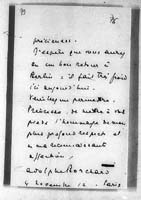 précieuses.
J'espère que vous aurez
eu un bon retour à
Berlin ; il fait très froid
ici aujourd'hui.
Veuillez me permettre,
Princesse, de mettre à vos
pieds l'hommage de mon
plus profond respect et
de ma reconnaissante
affection,
Adolphe Borchard
4 novembre 12. Paris